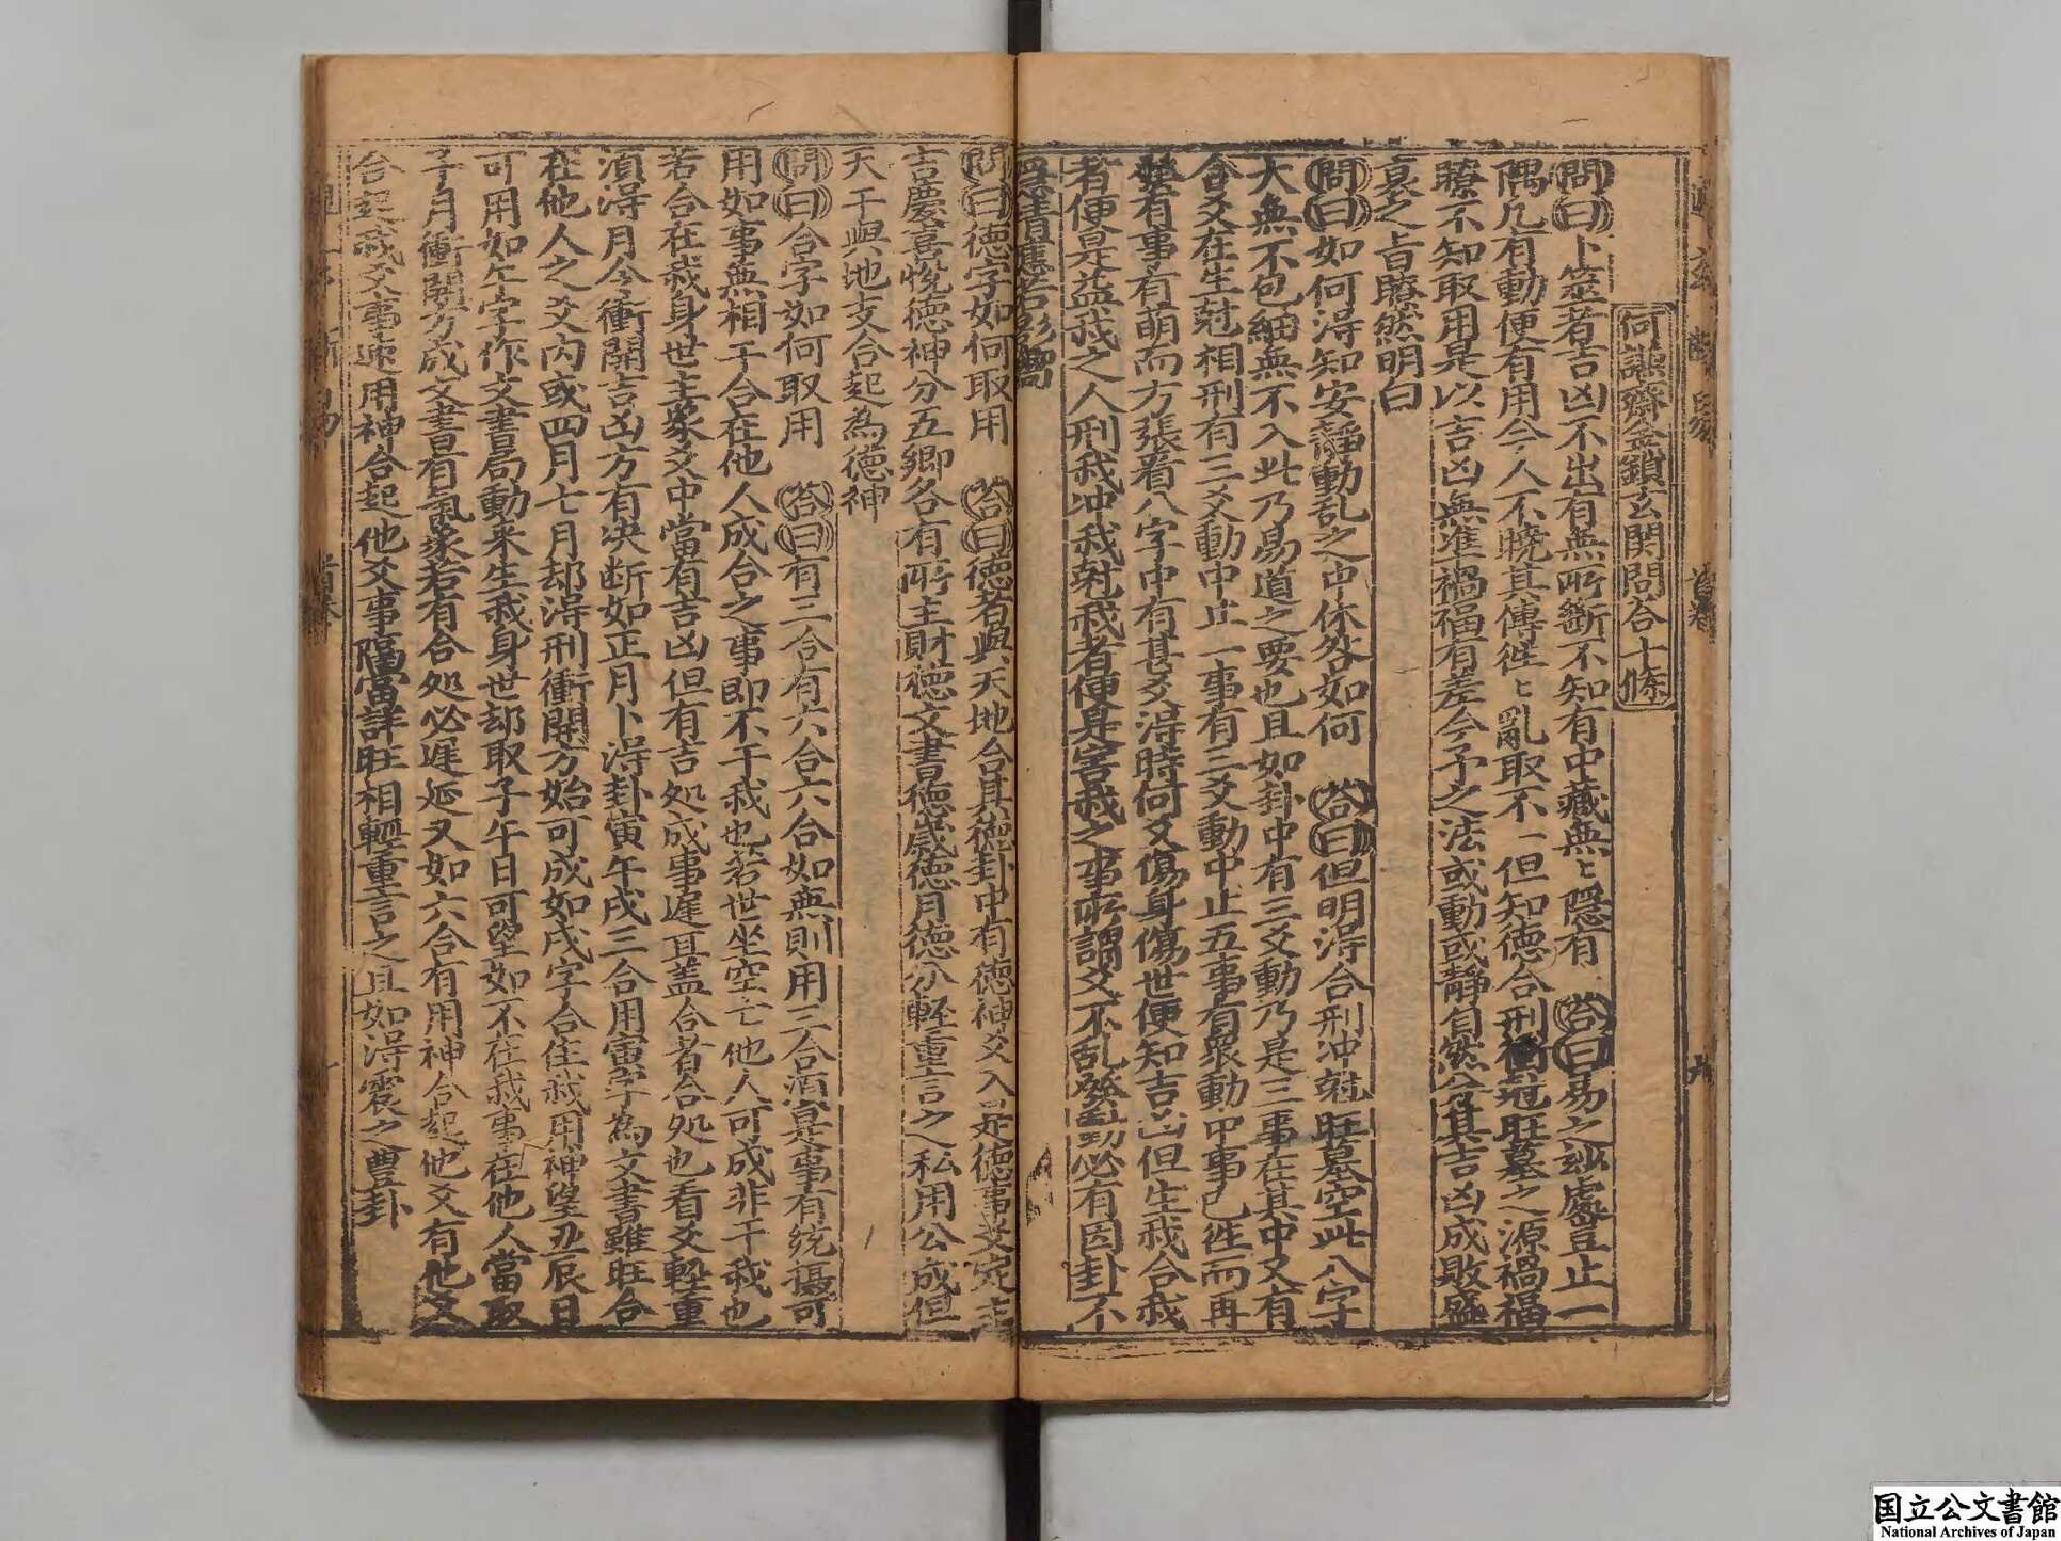 何謙齋金鎖玄関問答十條
問曰卜筮者吉凶不出有無所斷不知有中藏無〻隱有 答曰易之玅處豈止一
隅凡有動便有用今人不曉其傳徃〻亂取不一但知徳合刑衝尅旺墓之源禍福
瞭不知取用是以吉凶無准禍福有差今予之法或動或靜自然分其吉凶成敗盛
衰之旨瞭然明白
問曰如何淂知安靜動乱之中休咎如何 荅曰但明淂合刑冲尅旺墓空此八字
大無不包細無不入此乃昜道之要也且如卦中有三爻動乃是三事在其中又有
合爻在生尅相刑有三爻動中止一事有三爻動中止五事有衆動中事已徃而再
有事有萌而方張看八字中有甚爻淂時何爻傷身傷世便知吉凶但生我合我
者便是益我之人刑我冲我尅我者便是害我之事所謂爻不乱發動必有因卦不
應若影响
問曰徳字如何取用 荅曰徳者與天地合其徳卦中有徳神爻入是徳事爻定主
吉慶喜悅徳神分五鄉各有所主財徳文書徳歲徳月徳分輕重言之私用公成但
天干與地支合起為徳神
問曰合字如何取用 荅曰有三合有六合六合如無則用三合湏寔事有統攝可
用如事無相干合在他人成合之事即不干我也若世坐空亡他人可成非干我也
若合在我身世主象爻中當有吉凶但有吉処成事遲耳蓋合者合処也看爻輕重
湏淂月令衝開吉凶方有决断如正月卜淂卦寅午戌三合用寅字為文書雖旺合
在他人之爻内或四月七月却淂刑衝開方始可成如戌字合住我用神望丑辰日
可用如午字作文書局動来生我身世却取子午日可望如不在我事在他人當取
子月衝開方成文書有氣象若有合処必遲延又如六合有用神合起他爻有他爻
合起我爻事速用神合起他爻事隔當詳旺相輕重言之且如淂震之豐卦
首卷
国立公文書館
National Archives of Japan